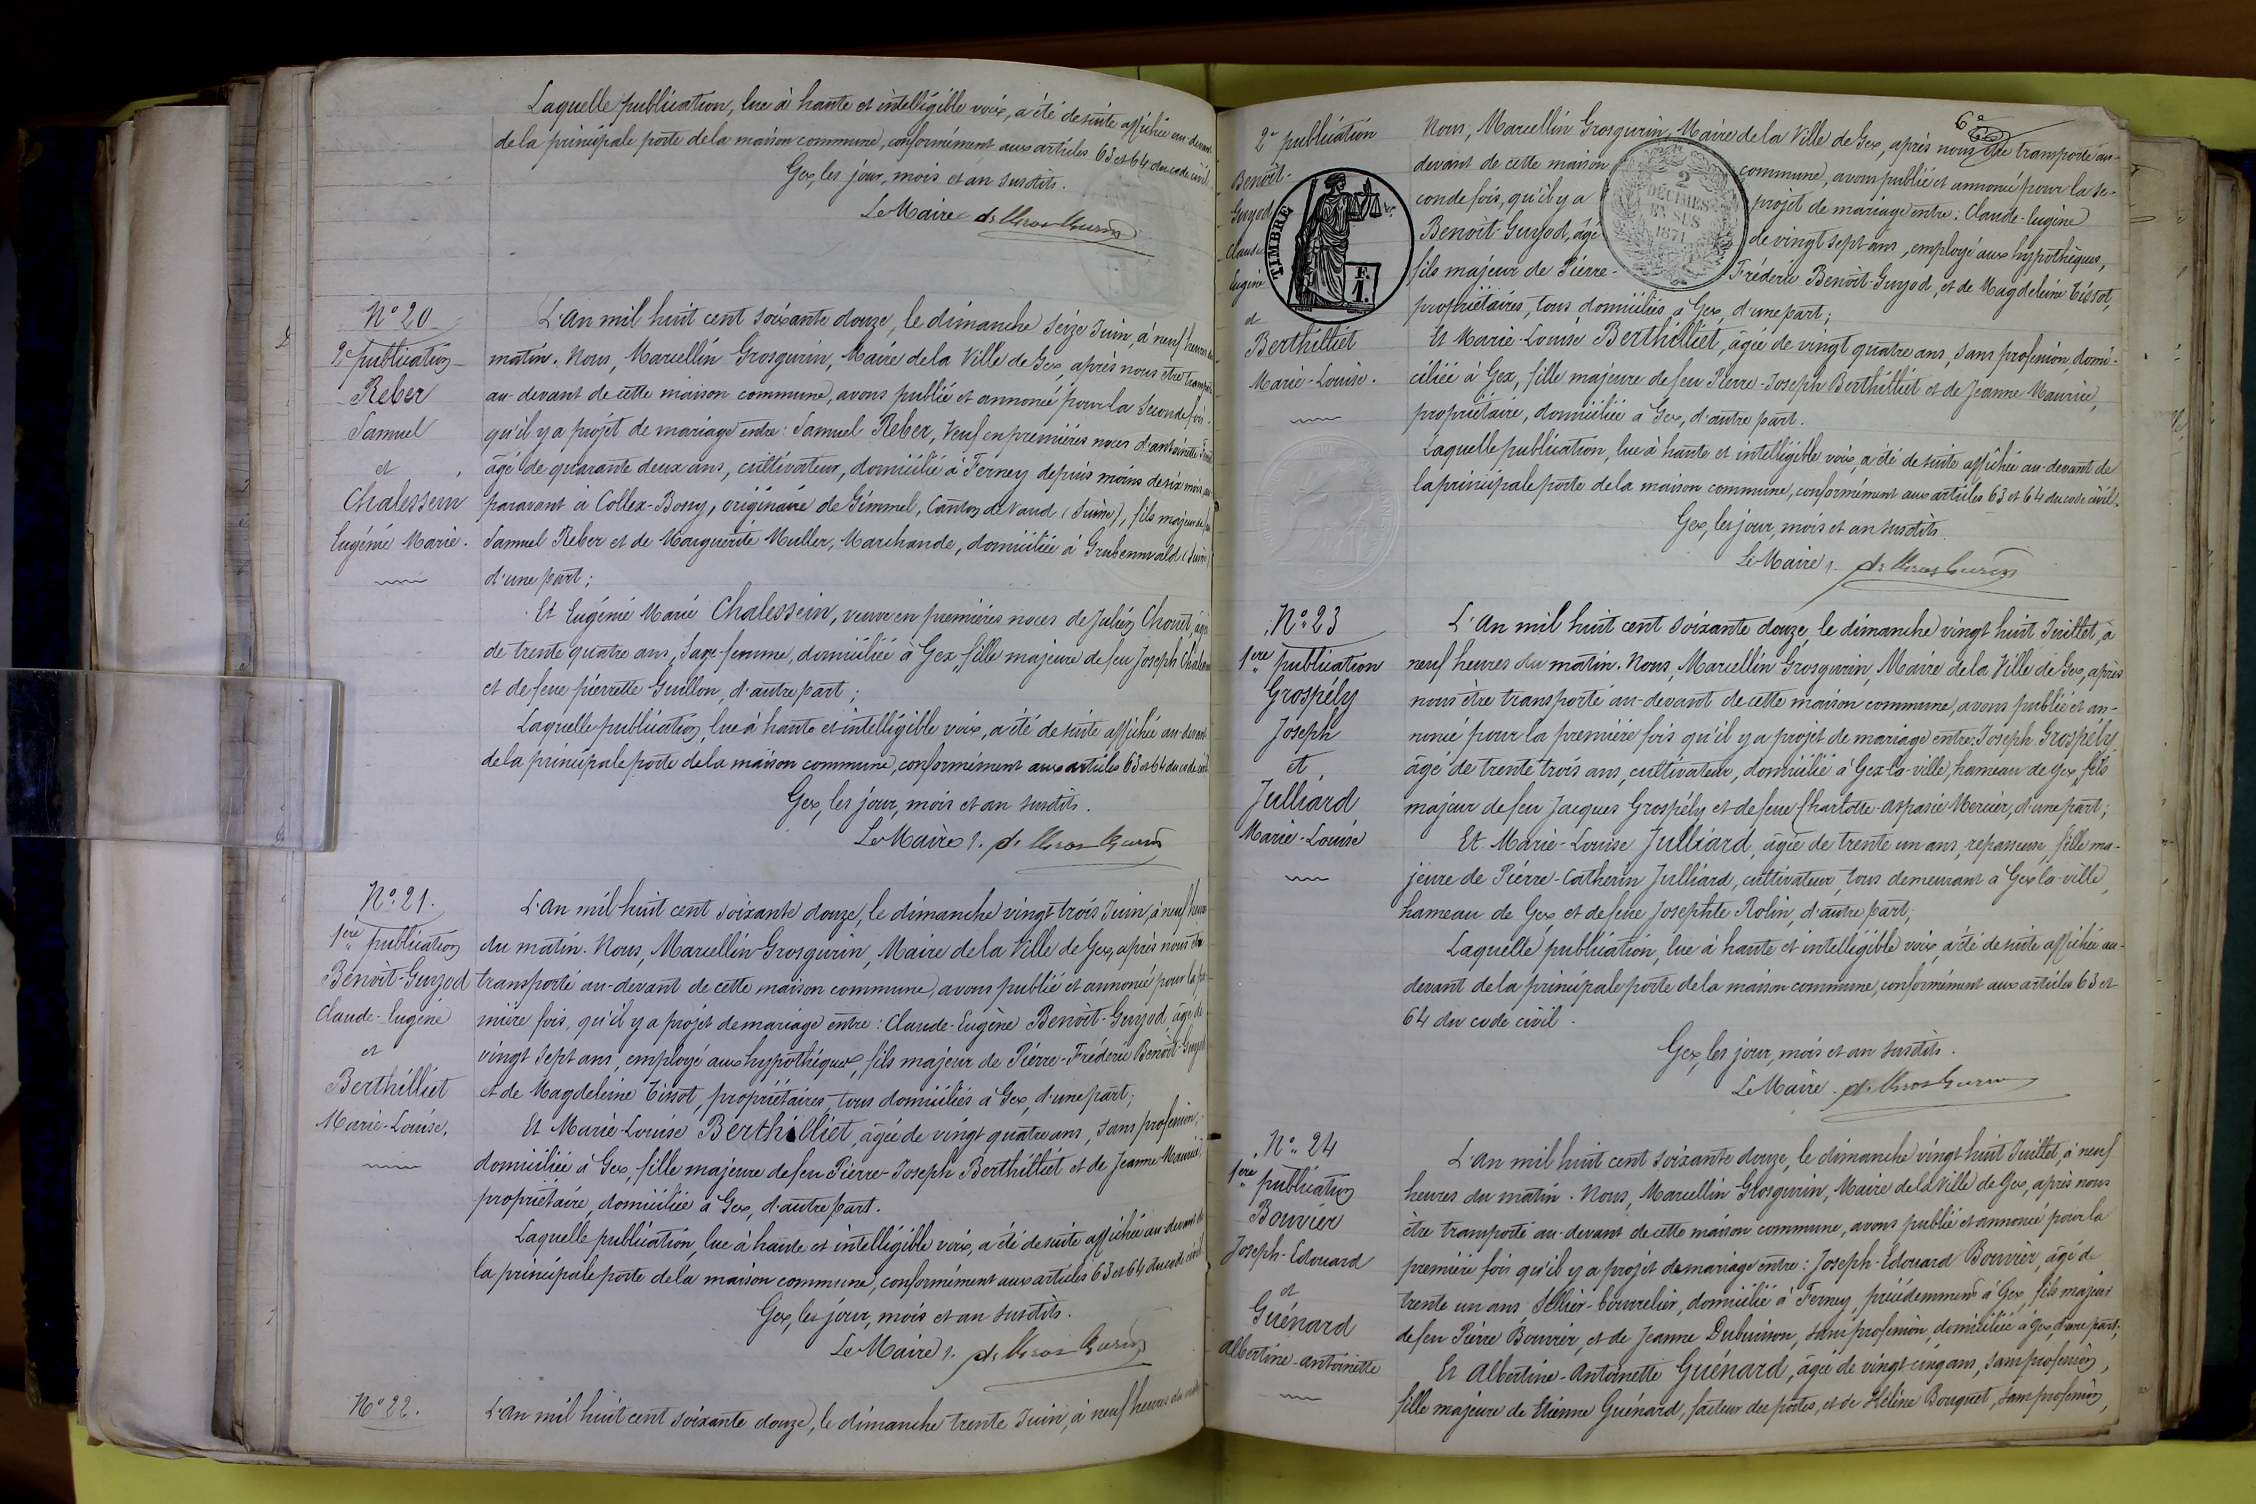 Laquelle publication, lue à haute et intelligible voix, a été de suite affichée au-devant
de la principale porte de la maison commune, conformément aux articles 63 et 64 du code civil.
Gex, les jour, mois et an susdits.
Le Maire
N° 20
2e publication
Reber
Samuel
et
Chalessein
Eugénie Marie.
L'An mil huit cent soixante douze, le dimanche seize Juin, à neuf heures du
matin. Nous, Marcellin Grosgurin, Maire de la Ville de Gex, après nous être transporté
au-devant de cette maison commune, avons publié et annoncé pour la seconde fois
qu'il y a projet de mariage entre : Samuel Reber, Veuf en premières noces d'antoinette
âgé de quarante deux ans, cultivateur, domicilié à Ferney depuis moins de six mois, au
paravant à Collex-Bossy, originaire de Gimmel, Canton de Vaud (Suisse), fils majeur de feu
Samuel Reber et de Marguerite Muller, Marchande, domiciliée à Grubenwald (Suisse)
d'une part ;
Et Eugénie Marie Chalessein, veuve en premières noces de Julien Chouet, âgée
de trente quatre ans, Sage-femme, domiciliée à Gex, fille majeure de feu Joseph Chalessein
et de feue pierrette Guillon, d'autre part ;
Laquelle publication, lue à haute et intelligible voix, a été de suite affichée au-devant
de la principale porte de la maison commune, conformément aux articles 63 et 64 du code civil
Gex, les jour, mois et an susdits.
Le Maire
N° 21.
1ère publication
Benoît-Guyod
Claude-Eugène
et
Berthilliet
Marie-Louise.
L'An mil huit cent soixante douze, le dimanche vingt trois Juin, à neuf heures
du matin. Nous, Marcellin Grosgurin, Maire de la Ville de Gex, après nous être
transporté au-devant de cette maison commune, avons publié et annoncé pour la pre-
mière fois, qu'il y a projet de mariage entre : Claude-Eugène Benoît-Guyod âgé de
vingt sept ans, employé aux hypothèques, fils majeur de Pierre-Fréderic Benoît-Guyod
et de Magdeleine Tissot, propriétaires, tous domiciliés à Gex, d'une part ;
Et Marie-Louise Berthilliet, âgée de vingt quatre ans, sans profession,
domiciliée à Gex, fille majeure de feu Pierre-Joseph Berthilliet et de Jeanne Maurice,
propriétaire, domiciliée à Gex, d'autre part.
Laquelle publication, lue à haute et intelligible voix, a été de suite affichée au-devant de
la principale porte de la maison commune, conformément aux articles 63 et 64 du code civil
Gex, les jour, mois et an susdits.
Le Maire
N° 22.
L'An mil huit cent soixante douze, le dimanche trente Juin, à neuf heures du matin
6e
2e publication
Benoît-
Guyod
Claude
Eugène
et
Berthilliet
Marie-Louise.
TIMBRE
F. 1.
2 DÉCIMES EN SUS 1871
Nous, Marcellin Grosgurin, Maire de la Ville de Gex, après nous être transporté au-
devant de cette maison commune, avons publié et annoncé pour la se-
conde fois, qu'il y a projet de mariage entre : Claude-Eugène
Benoît-Guyod, âgé de vingt sept ans, employé aux hypothèques,
fils majeur de Pierre-Fréderic Benoît-Guyod, et de Magdeleine Tissot,
propriétaires, tous domiciliés à Gex, d'une part ;
Et Marie-Louise Berthilliet, âgée de vingt quatre ans, sans profession, domi-
ciliée à Gex, fille majeure de feu Pierre-Joseph Berthilliet et de Jeanne Maurice,
propriétaire, domiciliée à Gex, d'autre part.
Laquelle publication, lue à haute et intelligible voix, a été de suite affichée au-devant de
la principale porte de la maison commune, conformément aux articles 63 et 64 du code civil.
Gex, les jour, mois et an susdits.
Le Maire
N° 23
1ère publication
Grospély
Joseph
et
Julliard
Marie-Louise
L'An mil huit cent soixante douze, le dimanche vingt huit Juillet, à
neuf heures du matin. Nous, Marcellin Grosgurin, Maire de la Ville de Gex, après
nous être transporté au-devant de cette maison commune, avons publié et an-
noncé pour la première fois qu'il y a projet de mariage entre : Joseph Grospély,
âgé de trente trois ans, cultivateur, domicilié à Gex-la-ville, hameau de Gex, fils
majeur de feu Jacques Grospély et de feue Charlotte-aspasie Mercier, d'une part ;
Et Marie-Louise Julliard, âgée de trente un ans, repasseuse, fille ma-
jeure de Pierre-Catherin Julliard, cultivateur, tous demeurant à Gex-la-ville,
hameau de Gex et de feue Josephte Rolin, d'autre part ;
Laquelle publication, lue à haute et intelligible voix, a été de suite affichée au-
devant de la principale porte de la maison commune, conformément aux articles 63 et
64 du code civil.
Gex, les jour, mois et an susdits.
Le Maire
N° 24
1ère publication
Bouvier
Joseph-Edouard
et
Guénard
Albertine-antoinette
L'An mil huit cent soixante douze, le dimanche vingt huit Juillet, à neuf
heures du matin. Nous, Marcellin Grosgurin, Maire de la Ville de Gex, après nous
être transporté au-devant de cette maison commune, avons publié et annoncé pour la
première fois qu'il y a projet de mariage entre : Joseph-Edouard Bouvier, âgé de
trente un ans Sellier-bourrelier, domicilié à Ferney, précédemment à Gex, fils majeur
de feu Pierre Bouvier, et de Jeanne Dubuisson, sans profession, domiciliée à Gex, d'une part ;
Et Albertine-Antoinette Guénard, âgée de vingt-cinq ans, sans profession,
fille majeure de Etienne Guénard, facteur des postes, et de Hélène Bouquet, sans profession,